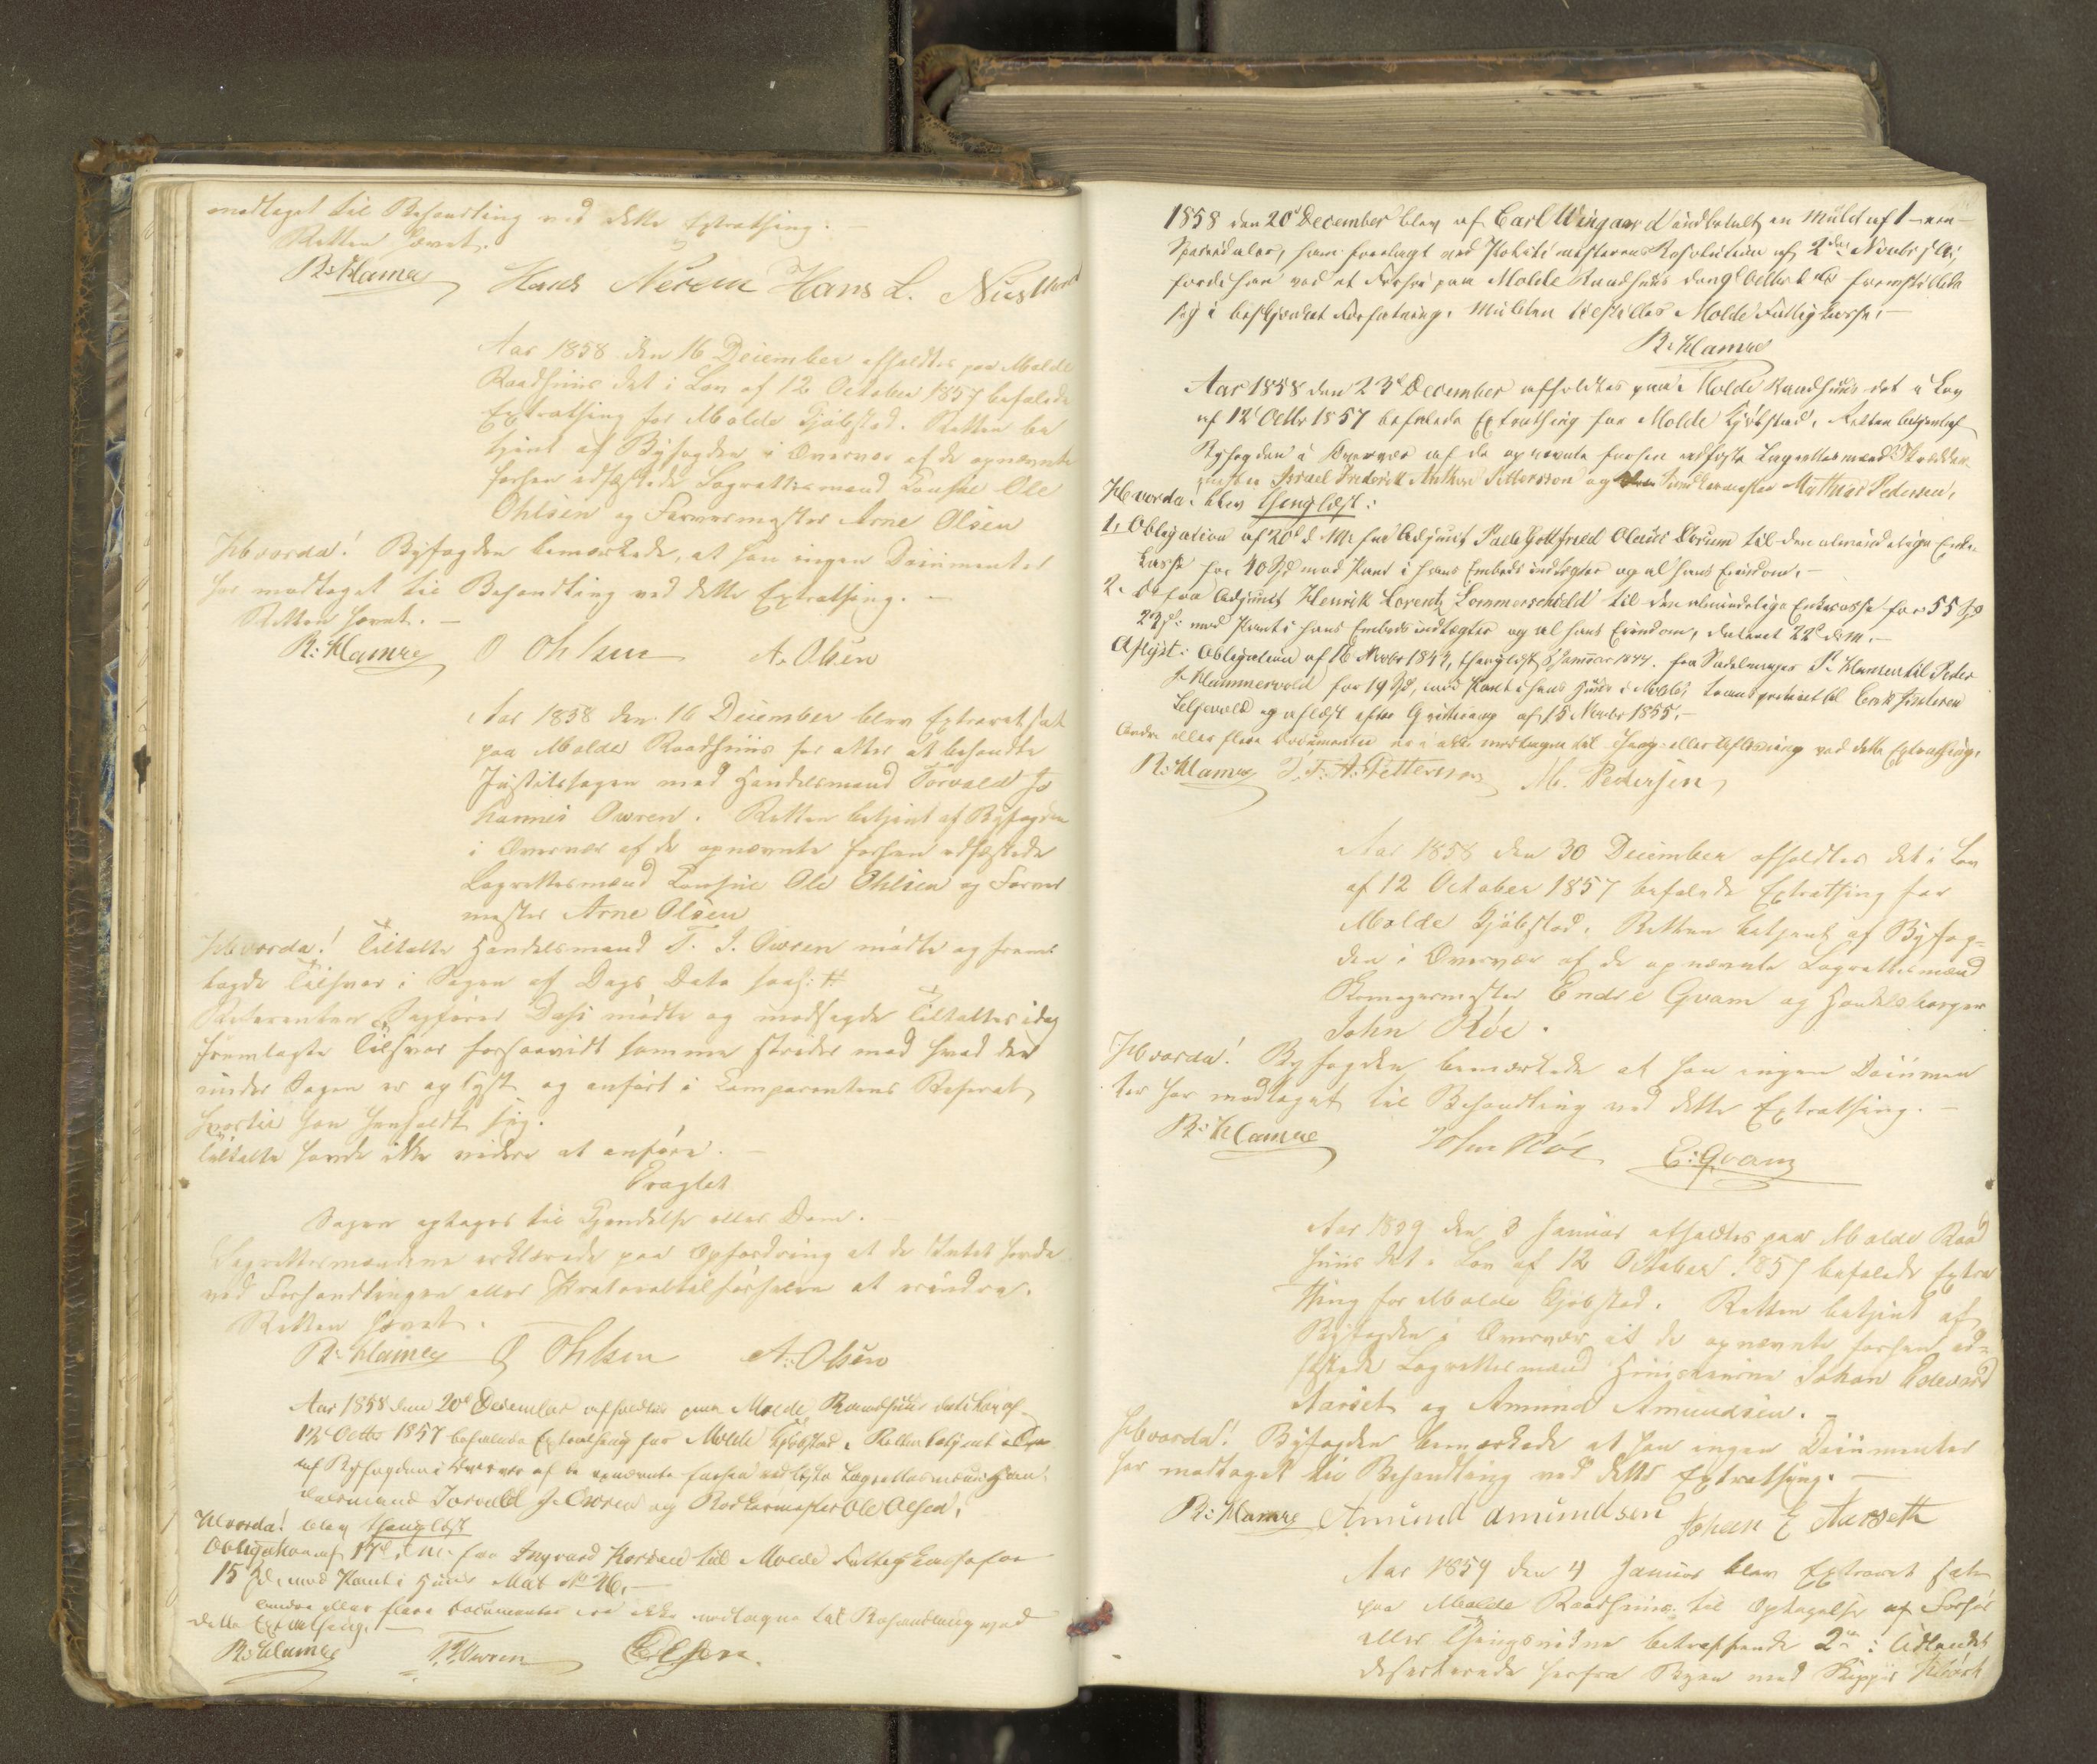 modtaget til Behandling ved dette Extrathing. —
Retten hævet.
R: Klamer Hans Nerem Hans L.
Aar 1858 den 16 December afholdtes paa Molde
Raadhuus det i Lov af 12 October 1857 befalede
Extrathing for Molde Kjøbstad. Retten be
tjent af Byfogden i Overvær af de opnævnte
forhen edfæstede Lagrettesmænd Konsul Ole
Ohlsen og Farvermester Arne Olsen
Hvorda! Byfogden bemærkede, at han ingen Documenter
har modtaget til Behandling ved dette Extrathing. —
Retten hævet. —
R: Klamer O Ohlsen A. Olsen
Aar 1858 den 16 December blev Extraret sat
paa Molde Raadhuus for atter at behandle
Justitssagen mod Handelsmand Torvald Jo
hannes Owren. Retten betjent af Byfogden
i Overvær af de opnævnte forhen edfæstede
Lagrettesmænd Konsul Ole Ohlsen og Farver
mester Arne Olsen
Hvorda! Tiltalte Handelsmand T. J. Owren mødte og frem
lagde Tilsvar i Sagen af Dags Dato saal: #
Referenten Sagfører Dahl mødte og modsagde Tiltaltes idag
fremlagte Tilsvar forsaavidt samme strider mod hvad der
under Sagen er oplyst og anført i Comparentens Referat
hvortil han henholdt sig.
Tiltalte havde ikke videre at anføre. —
Eragtet
Sagen optages til Kjendelse eller Dom. —
Lagrettesmændene erklærede paa Opfordring at de Intet havde
ved Forhandlingen eller Protocoltilførselen at erindre.
Retten hævet. —
R: Klamer O Ohlsen A: Olsen
Aar 1858 den 20de December afholdtes paa Molde Raadhuus det i Lov af
12 Octbr 1857 befalede Extrathing for Molde Kjøbstad. Retten betjent
af Byfogden i Overvær af de opnævnte forhen edfæste Lagrettesmænd Han
delsmand Torvald J. Owren og Bødkermester Ole Olsen.
Hvorda! blev thinglæst
Obligation af 17d. d. M. fra Ingvard Korsen til Molde Fattigkasse for
15 Spd. mod Pant i Huus Mat. No 46. —
Andre eller flere Documenter ere ikke modtagne til Behandling ved
dette Extrathing. —
R: Klamer T. J. Owren O Olsen.
1858 den 20d December blev af Carl Wingaard indbetalt en Mulct af 1 - een -
Speciedaler, ham forelagt ved Politimesterens Resolution af 2den Novbr d. A.,
fordi han ved et Forhør paa Molde Raadhuus den Octbr d. A. fremstillede
sig i beskjænket Forfatning. Mulcten tilstilles Molde Fattigkasse. —
R: Klamer
Aar 1858 den 23d December afholdtes paa Molde Raadhuus det i Lov
af 12 Octbr 1857 befalede Extrathing for Molde Kjøbstad. Retten betjentes af
Byfogden i Overvær af de opnævnte forhen edfæste Lagrettesmænd Skrædder-
mester Israel Frederik Anthon Pettersson og Mathias Pedersen.
Hvorda! blev thinglæst:
1, Obligation af 20d d. M. fra Adjunct Palle Gottfried Olaus Dorum til den almindelige Enke-
kasse for 40 Spd mod Pant i hans Embeds indtægter og al hans Eiendom. —
2. Do fra Adjunct Henrik Lorentz Sommerschield til den almindelige Enkekasse for 55 Spd
mod Pant i hans Embedsindtægter og al hans Eiendom, dateret 22d d. M. —
Aflyst: Obligation af 16 Novbr 1843, thinglæst 8 Januar 1844 fra Sadelmager P. Hansen til Peder
J. Hammervold for 19 Spd, mod Pant i hans Huus i Molde, transporteret til
og aflæst efter Qvittering af 15 Novbr 1855. —
Andre eller flere Documenter ere ikke modtagne til Thing- eller Aflæsning ved dette Extrathing.
R: Klamer I. F. A. Petterson M. Pedersen
Aar 1858 den 30 December afholdtes det i Lov
af 12 October 1857 befalede Extrathing for
Molde Kjøbstad. Retten betjent af Byfog-
den i Overvær af de opnævnte Lagrettesmænd
Skomagermester Endre Qvam og Handelsborger
John Röe.
Hvorda! Byfogden bemærkede at han ingen Documen
ter har modtaget til Behandling ved dette Extrathing. —
R: Klamer John Röe E: Qvam
Aar 1859 den 3 Januar afholdtes paa Molde Raad
huus det i Lov af 12 October 1857 befalede Extra
thing for Molde Kjøbstad. Retten betjent af
Byfogden i Overvær af de opnævnte forhen ed-
fæstede Lagrettesmænd Huuseierne Johan Edevard
Aarset og Amund Amundsen. —
Hvorda! Byfogden bemærkede at han ingen Documenter
har modtaget til Behandling ved dette Extrathing. —
R: Klamer Amund Amundsen Johan E Aarseth
Aar 1859 den 4 Januar blev Extraret sat
paa Molde Raadhuus til Optagelse af Forhør
eller Thingsvidne betræffende 2de i Udlandet
deserterede herfra Byen med Skipper